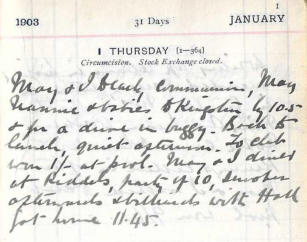 1
1903 31 Days JANUARY
1 THURSDAY [1—364]
Circumcision. Stock Exchange closed.
May & I Early Communion, May
Nannie & babies to Kingston by 10.5
& for a drive in buggy. Back to
lunch, quiet afternoon. To club
won 1/- at pool. May & I dined
at Riddels, party of 10
afterwards & billiards with Hall
got home 11.45.